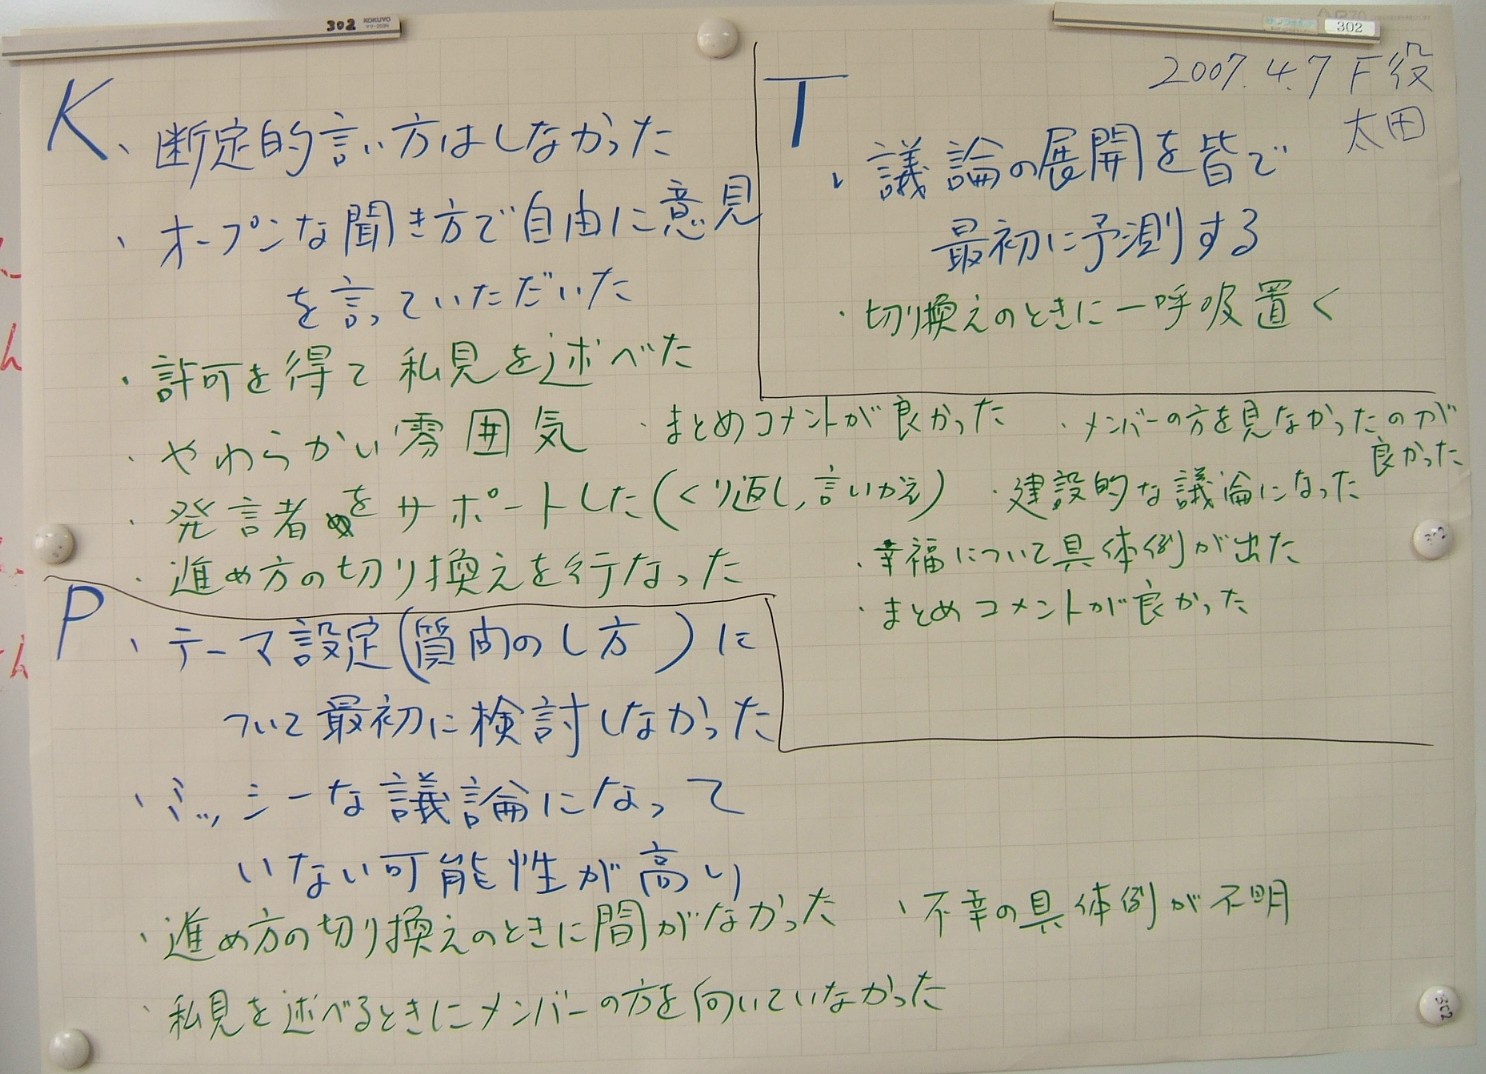 302 KOKUYO
302
2007.4.7 F役
太田
K
・断定的言い方はしなかった
・オープンな聞き方で自由に意見
を言っていただいた
・許可を得て私見を述べた
・やわらかい雰囲気
・発言者をサポートした(くり返し,言いかえ)
・進め方の切り換えを行なった
・まとめコメントが良かった
・メンバーの方を見なかったのが
良かった
・建設的な議論になった
・幸福について具体例が出た
・まとめコメントが良かった
T
・議論の展開を皆で
最初に予測する
・切り換えのときに一呼吸置く
P
・テーマ設定(質問のし方)に
ついて最初に検討しなかった
・ミッシーな議論になって
いない可能性が高い
・進め方の切り換えのときに間がなかった
・不幸の具体例が不明
・私見を述べるときにメンバーの方を向いていなかった